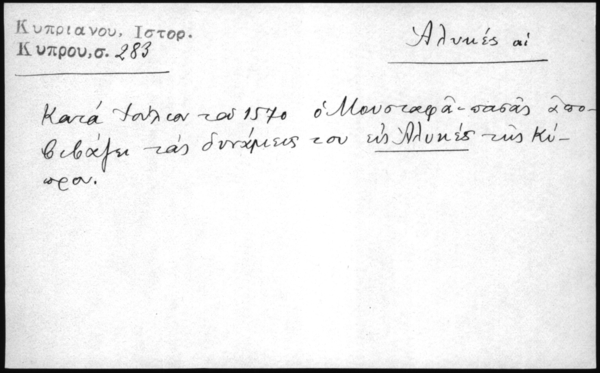 Κυπριανου, Ιστορ.
Κυπρου, σ. 283
Ἁλυκές αἱ
Κατά Ἰούλιον τοῦ 1570 ὁ Μουσταφᾶ-πασᾶς ἀπο-
βιβάζει τάς δυνάμεις του εἰς Ἁλυκές τῆς Κύ-
πρου.